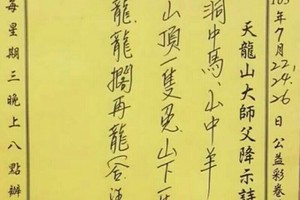 103年7月22,24,26日公益彩卷
天龍山大師父降示詩
洞中馬、山中羊
山頂一隻兔、山下一
龍龍擱再龍答
每星期三晚上八點辦